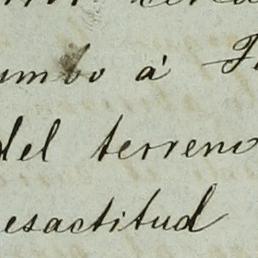 umbo á
del terreno
esactitud